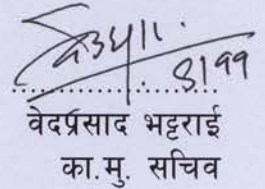 ८।११
वेदप्रसाद भट्टराई
का.मु. सचिव